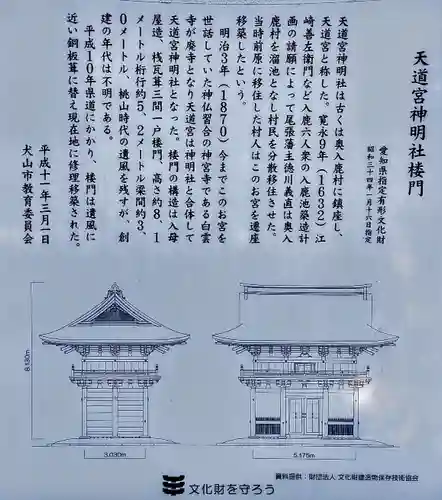 天道宮神明社楼門
愛知県指定有形文化財
昭和三十四年一月十六日指定
天道宮神明社は古くは奥入鹿村に鎮座し、
天道宮と称した。寛永9年(1632)江
崎善左衛門など入鹿六人衆の入鹿池築造計
画の請願によって尾張藩主徳川義直は奥入
鹿村を溜池となし村民を分散移住させた。
当時前原に移住した村人はこのお宮を遷座
移築したという。
明治3年(1870)今までこのお宮を
世話していた神仏習合の神宮寺である白雲
寺が廃寺となり天道宮は神明社と合体して
天道宮神明社となった。楼門の構造は入母
屋造、桟瓦葺三間一戸楼門、高さ約8、1
メートル桁行約5、2メートル梁間約3、
0メートル、桃山時代の遺風を残すが、創
建の年代は不明である。
平成10年県道にかかり、楼門は遺風に
近い銅板葺に替え現在地に修理移築された。
平成十一年三月一日
犬山市教育委員会
8.130m
3.030m
5.175m
資料提供：財団法人 文化財建造物保存技術協会
文化財を守ろう